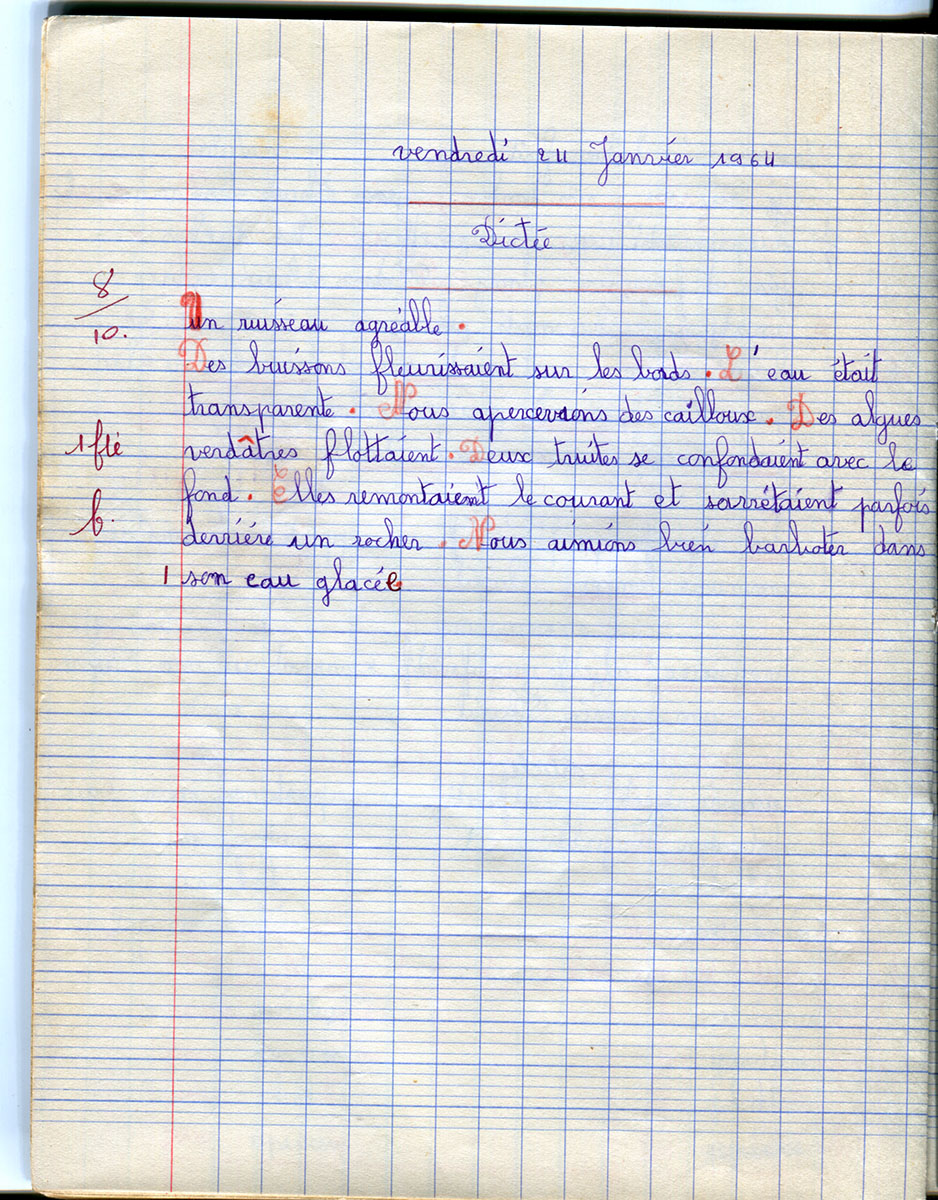 vendredi 24 Janvier 1964
Dictée
8
10.
Un ruisseau agréable.
Des buissons fleurissaient sur les bords. L'eau était
transparente. Nous apercevions des cailloux. Des algues
1 flé verdâtres flottaient. Deux truites se confondaient avec le
fond. Elles remontaient le courant et sarrêtaient parfois
b.
derrière un rocher. Nous aimions bien barboter dans
1 son eau glacée